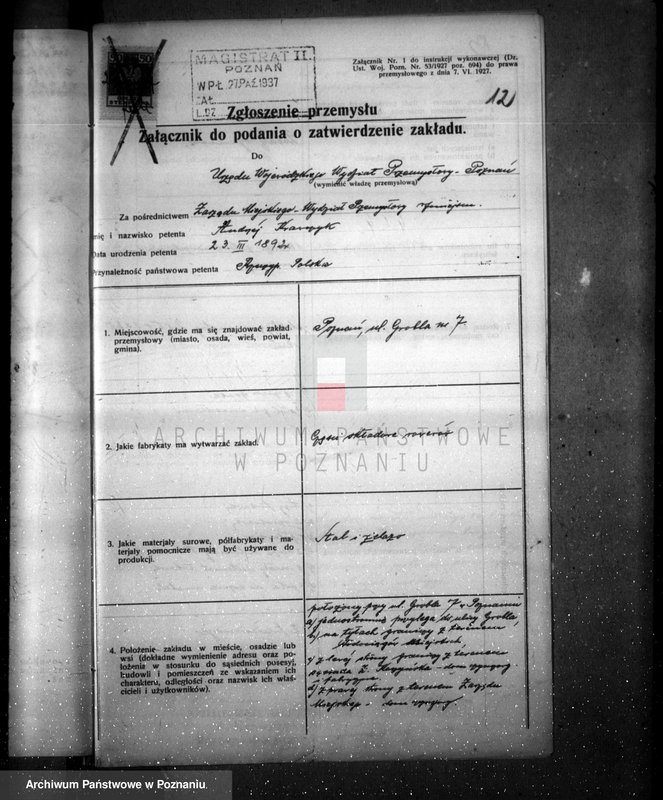 Załącznik Nr. 1 do instrukcji wykonawczej (Dz.
Ust. Woj. Pozn. Nr. 53/1927 poz. 694) do prawa
przemysłowego z dnia 7. VI. 1927.
MAGISTRAT II.
POZNAŃ
WPŁ. 27 PAŹ 1937
ZAŁ.
L.DZ.
12
Zgłoszenie przemysłu
Załącznik do podania o zatwierdzenie zakładu.
Do
Urzędu Wojewódzkiego Wydział Przemysłowy - Poznań
(wymienić władzę przemysłową)
Za pośrednictwem Zarządu Miejskiego - Wydział Przemysłowy
Imię i nazwisko petenta Andrzej
Data urodzenia petenta 23. III 1892r
Przynależność państwowa petenta Polska
1. Miejscowość, gdzie ma się znajdować zakład
przemysłowy (miasto, osada, wieś, powiat,
gmina).
Poznań, ul. Grobla nr 7
2. Jakie fabrykaty ma wytwarzać zakład.
Części składowe rowerów
3. Jakie materjały surowe, półfabrykaty i ma-
terjały pomocnicze mają być używane do
produkcji.
Stal i żelazo
4. Położenie zakładu w mieście, osadzie lub
wsi (dokładne wymienienie adresu oraz po-
łożenia w stosunku do sąsiednich posesyj,
budowli i pomieszczeń ze wskazaniem ich
charakteru, odległości oraz nazwisk ich właś-
cicieli i użytkowników).
położony przy ul. Grobla 7 w Poznaniu
a) jednostronnie przylega do ulicy Grobla
b) na tyłach graniczy z terenem
c) z lewej strony graniczy z terenem
sąsiada
i fabryczne
d) z prawej strony z terenem Zarządu
Miejskiego - dom
ARCHIWUM PAŃSTWOWE
W POZNANIU
Archiwum Państwowe w Poznaniu.